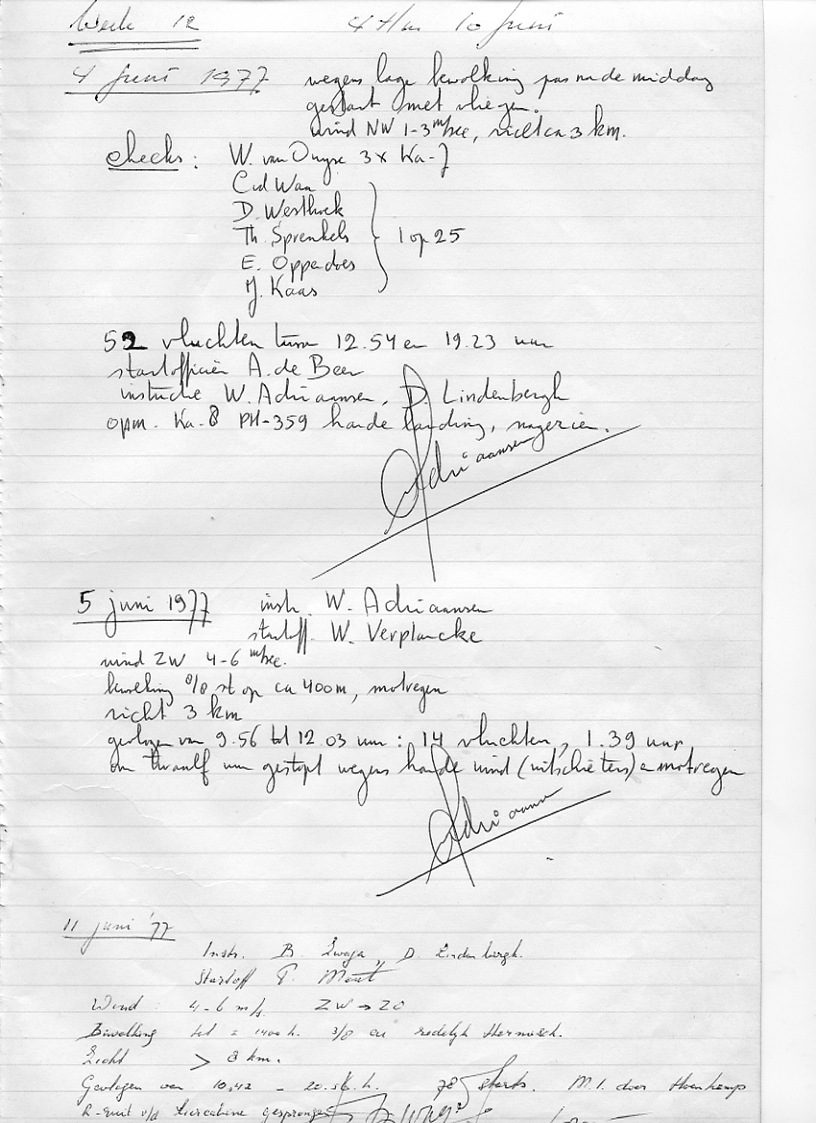 Week 12 4 t/m 10 Juni
4 Juni 1977 wegens lage bewolking pas na de middag
gestart met vliegen.
wind NW 1-3 m/sec, zicht ca 3 km.
checks: W. van Ouyse 3x Ka-7
C. vd Waa
D. Westhoek
Th. Sprenkels
1 op 25
E. Opperdoes
J. Kaas
52 vluchten tussen 12.54 en 19.23 uur
startofficier A. de Beer
instructie W. Adriaansen, D. Lindenbergh
opm. Ka-8 PH-359 harde landing, nagezien.
Adriaansen
5 juni 1977 instr. W. Adriaansen
startoff. W. Verplancke
wind ZW 4-6 m/sec.
bewolking 8/8 st op ca 400m, motregen
zicht 3 km
gevlogen van 9.56 tot 12.03 uur: 14 vluchten, 1.39 uur
om twaalf uur gestopt wegens harde wind (uitschieters) en motregen
Adriaansen
11 juni '77
Instr. B. Zwaga, D. Lindenbergh.
Startoff P. Mout
Wind: 4-6 m/s. ZW → ZO
Bewolking tot ± 1400 h. 3/8 cu redelijk thermisch.
Zicht > 8 km.
Gevlogen van 10.42 - 20.56 h. 78 starts. M.I. door Hoenkamp
R-Ruit v/d gesprongen